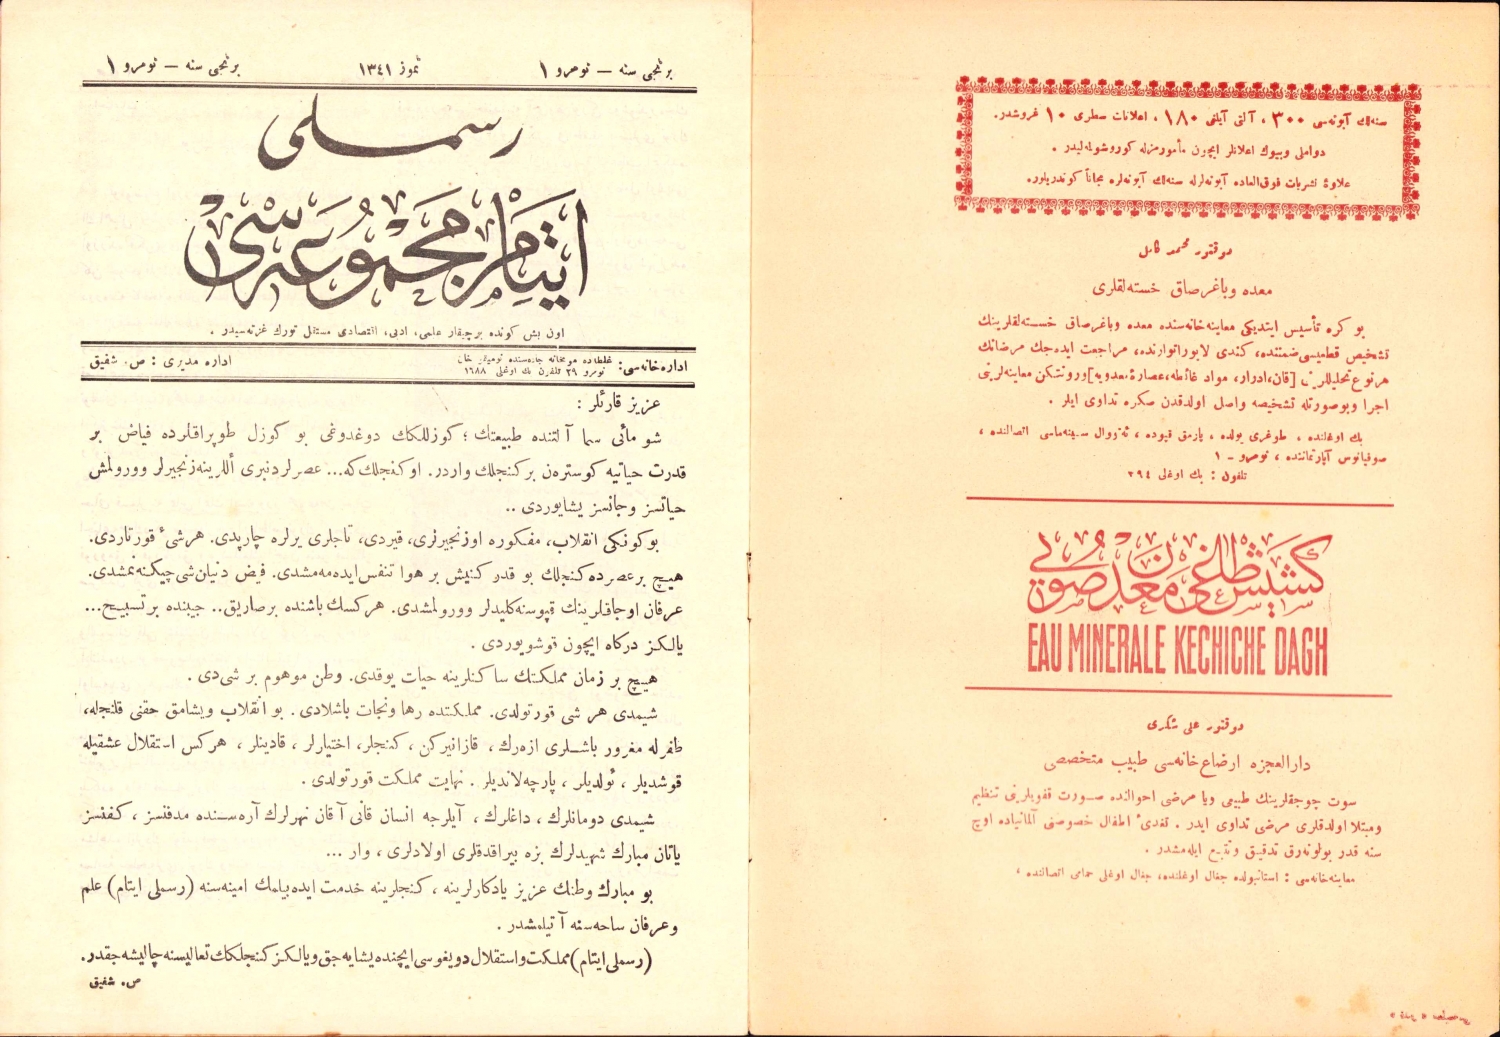 برنجی سنه — نومرو ١
تموز ١٣٤١
برنجی سنه — نومرو ١
رسملی
ایتام مجموعه‌سی
اون بش كونده بر چیقار علمی، ادبی، اقتصادی مستقل تورك غزته‌سیدر .
اداره‌خانه‌سی: غلطه‌ده مومخانه جاده‌سنده خان
نومرو ٣٩ تلفون بك اوغلی ١٦٨٨
اداره مدیری : ص. شفیق
عزیز قارئلر :
شو مائی سما آلتنده طبیعتك ؛ كوزللكك دوغدوغی بو كوزل طوپراقلرده فیاض بر
قدرت حیاتیه كوسترەن بر كنجلك واردر. او كنجلك كه... عصرلردنبری أللرینه زنجیرلر وورولمش
حیاتسز و جانسز یشایوردی ..
بو كونكی انقلاب، مفكوره او زنجیرلری، قیردی، تاجلری یرلره چارپدی. هر شیء قورتاردی.
هیچ بر عصرده كنجلك بو قدر كنیش بر هوا تنفس ایده‌مه‌مشدی. فیض دنیاسی چیكنه‌نمشدی.
عرفان اوجاقلرینك قپوسنه كلیدلر وورولمشدی. هركسك باشنده بر صاریق.. جیبنده بر تسبیح...
یالكز دركاه ایچون قوشویوردی .
هیچ بر زمان مملكتك ساكنلرینه حیات یوقدی. وطن موهوم بر شی دی .
شیمدی هر شی قورتولدی. مملكتده رها ونجات باشلادی . بو انقلاب ویشامق حقنی قلنجله،
ظفرله مغرور باشلری ازه‌رك ، قازانیركن ، كنجلر، اختیارلر ، قادینلر ، هركس استقلال عشقیله
قوشدیلر ، ئولدیلر ، پارچه‌لاندیلر . نهایت مملكت قورتولدی .
شیمدی دومانلرك ، داغلرك ، آیلرجه انسان قانی آقان نهرلرك آره‌سنده مدفنسز ، كفنسز
یاتان مبارك شهیدلرك بزه بیراقدقلری اولادلری ، وار ...
بو مبارك وطنك عزیز یادكارلرینه ، كنجلرینه خدمت ایده‌بیلمك امینه‌سنه (رسملی ایتام) علم
وعرفان ساحه‌سنه آتیلمشدر .
(رسملی ایتام) مملكت واستقلال دویغوسی ایچنده یشایه‌جق و یالكز كنجلكك تعالیسنه چالیشه‌جقدر.
ص. شفیق
سنه‌لك آبونه‌سی ٣٠٠ ، آلتی آیلغی ١٨٠ ، اعلانات سطری ١٠ غروشدر.
دواملی وبیوك اعلانلر ایچون مأمورمزله كوروشولمه‌لیدر .
علاوهٔ نشریات فوق‌العاده آبونه‌لرله سنه‌لك آبونه‌لره مجاناً كوندریلور.
دوقتور محمد كامل
معده وباغرصاق خسته‌لقلری
بو كره تأسیس ایتدیكی معاینه‌خانه‌سنده معده وباغرصاق خسته‌لقلرینك
تشخیص قطعیسی ضمننده، كندی لابوراتوارنده، مراجعت ایده‌جك مرضانك
هرنوع تحلیللرینی [قان، ادرار، مواد غائطه، عصارهٔ معدویه] ورونتكن معاینه‌لرینی
اجرا وبوصورتله تشخیصه واصل اولدقدن صكره تداوی ایلر .
بك اوغلنده ، طوغری یولده ، یازمق قپوده ، ئه‌توال سینه‌ماسی اتصالنده ،
صوفیانوس آپارتماننده ، نومرو – ١
تلفون : بك اوغلی ٣٩٤
كشیش طاغی معدن صویی
EAU MINERALE KECHICHE DAGH
دوقتور علی شكری
دارالعجزه ارضاع‌خانه‌سی طبیب متخصصی
سوت چوجقلرینك طبیعی ویا مرضی احوالنده صورت تغذیه‌لرینی تنظیم
ومبتلا اولدقلری مرضی تداوی ایدر . تغدیٔ اطفال خصوصنی آلمانیاده اوچ
سنه قدر بولونه‌رق تدقیق وتتبع ایله‌مشدر .
معاینه‌خانه‌سی : استانبولده جغال اوغلنده، جغال اوغلی حمامی اتصالنده ،